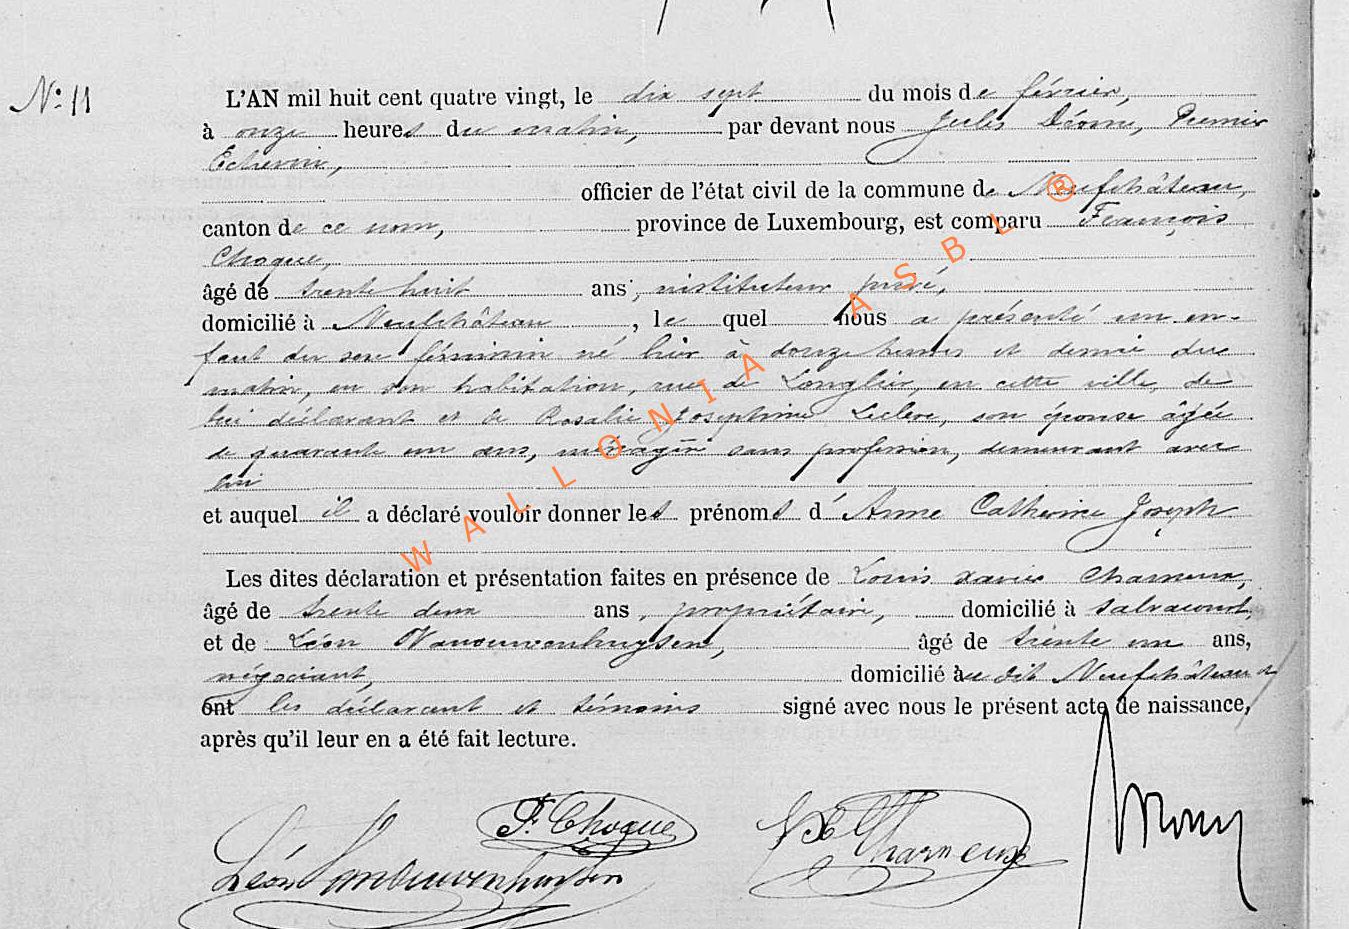 N° 11
L'AN mil huit cent quatre vingt, le dix sept du mois de février,
à onze heures du matin, par devant nous Jules Premier
Echevin,
officier de l'état civil de la commune de Neufchâteau,
canton de ce nom, province de Luxembourg, est comparu François
Choque,
âgé de trente huit ans, instituteur privé,
domicilié à Neufchâteau, le quel nous a présenté un en-
fant du sexe féminin né hier à douze heures et demie du
matin, en son habitation, rue de Longlier, en cette ville, de
lui déclarant et de Rosalie Josephine Leclere, son épouse âgée
de quarante un ans, ménagère sans profession, demeurant avec
lui
et auquel il a déclaré vouloir donner les prénoms d'Anne Catherine Joseph
Les dites déclaration et présentation faites en présence de Louis Xavier Charneux,
âgé de trente deux ans, propriétaire, domicilié à Salvacourt,
et de Léon Vancuwenhuysen, âgé de trente un ans,
négociant, domicilié au dit Neufchâteau
ont les déclarant et témoins signé avec nous le présent acte de naissance,
après qu'il leur en a été fait lecture.
F. Choque
Charneux
Léon
WALLONIA ASBL ®